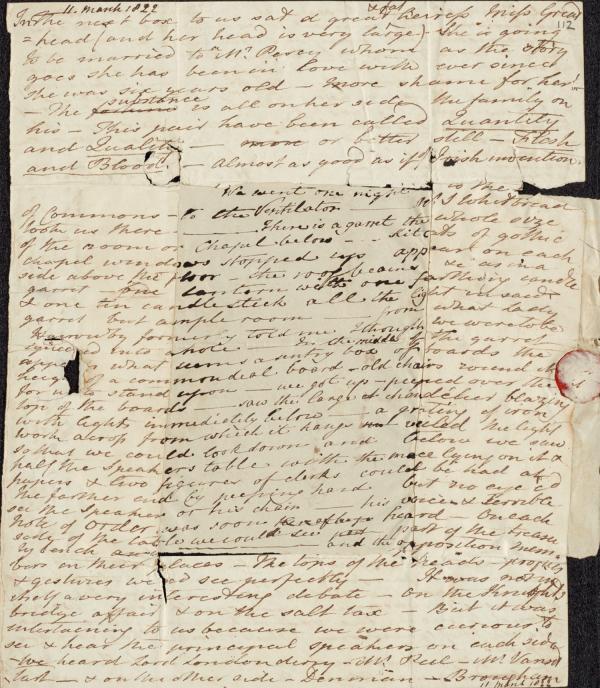 11 March 1822
112
& fat
In the next box to us sat a great heiress Miss Great
=head (and her head is very large) She is going
to be married to Mr Percy whom as the story
goes she has been in love with ever since
she was six years old – more shame for her!
substance
– The is all on her side the family on
his – This pair have been called Quantity
and Quality – more or better still – Flesh
and Blood. – almost as good as if Irish invention.
We went one night is the
of Commons – to the Ventilator Mr. S Whitbread
took us there – There is a garret the whole size
of the room or Chapel below – of gothic
chapel windows stopped up appear on each
side above the floor – the roof beams as in a
garret – lantern with one farthing candle
& one tin candlestick all the light in said
garret but ample room – from what Lady
formerly told me I thought we were to be
squeezed into a hole. In the middle the garret
what seems a sentry box of boards the
height of a common deal board – old chairs round it
for us to stand upon – we got up – peeped over the
top of the boards – saw the large chandelier blazing
with lights immediately below – a grating of iron
work across from which it hangs veiled the light
so that we could look down and below we saw
half the speakers table with the mace lying on it &
papers & two figures of clerks could be had at
the farther end by peeping hard but no eye cd
see the speaker or his chair – his voice & terrible
note of Order was soon heard – On each
side of the table we could see part of the treasu
ry bench and and the opposition mem
bers in their places – The tops of the heads – profiles
& gestures we cd see perfectly – It was not in
itself a very interesting debate – on the Knights
bridge affair & on the salt tax – But it was
entertaining to us because we were curious to
see & hear the principal speakers on each side
– we heard Lord Londonderry – Mr. Peel – Mr. Vansi
tart – & on the other side – Denman – Brougham
11 March 1822